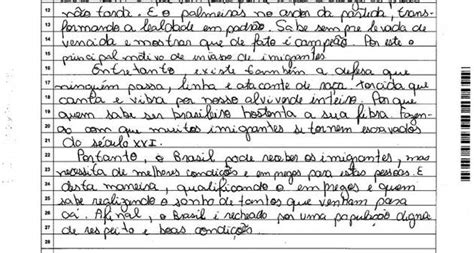 12 não tarda. E o palmeiras no ardor da partida, trans-
13 formando a lealdade em padrão. Sabe sempre levada de
14 vencida e mostrar que de fato é campeão. Por este o
15 principal motivo de invasão de imigantes
16 Entretanto, existe também a defesa que
17 ninguém passa, linha e atacante de raça, torcida que
18 canta e vibra por nosso alviverde inteiro. Por que
19 quem sabe ser brasileiro hostenta a sua fibra. Fazen-
20 do com que muitos imigrantes se tornem escravos
21 do século XXI.
22 Portanto, o Brasil pode receber os imigrantes, mas
23 necessita de melhores condições e empregos para estas pessoas. E
24 desta maneira, qualificando o empregos e quem
25 sabe realizando o sonho de tantos que venham para
26 cá. Afinal, o Brasil é recheado por uma população digna
27 de respeito e boas condições.
28